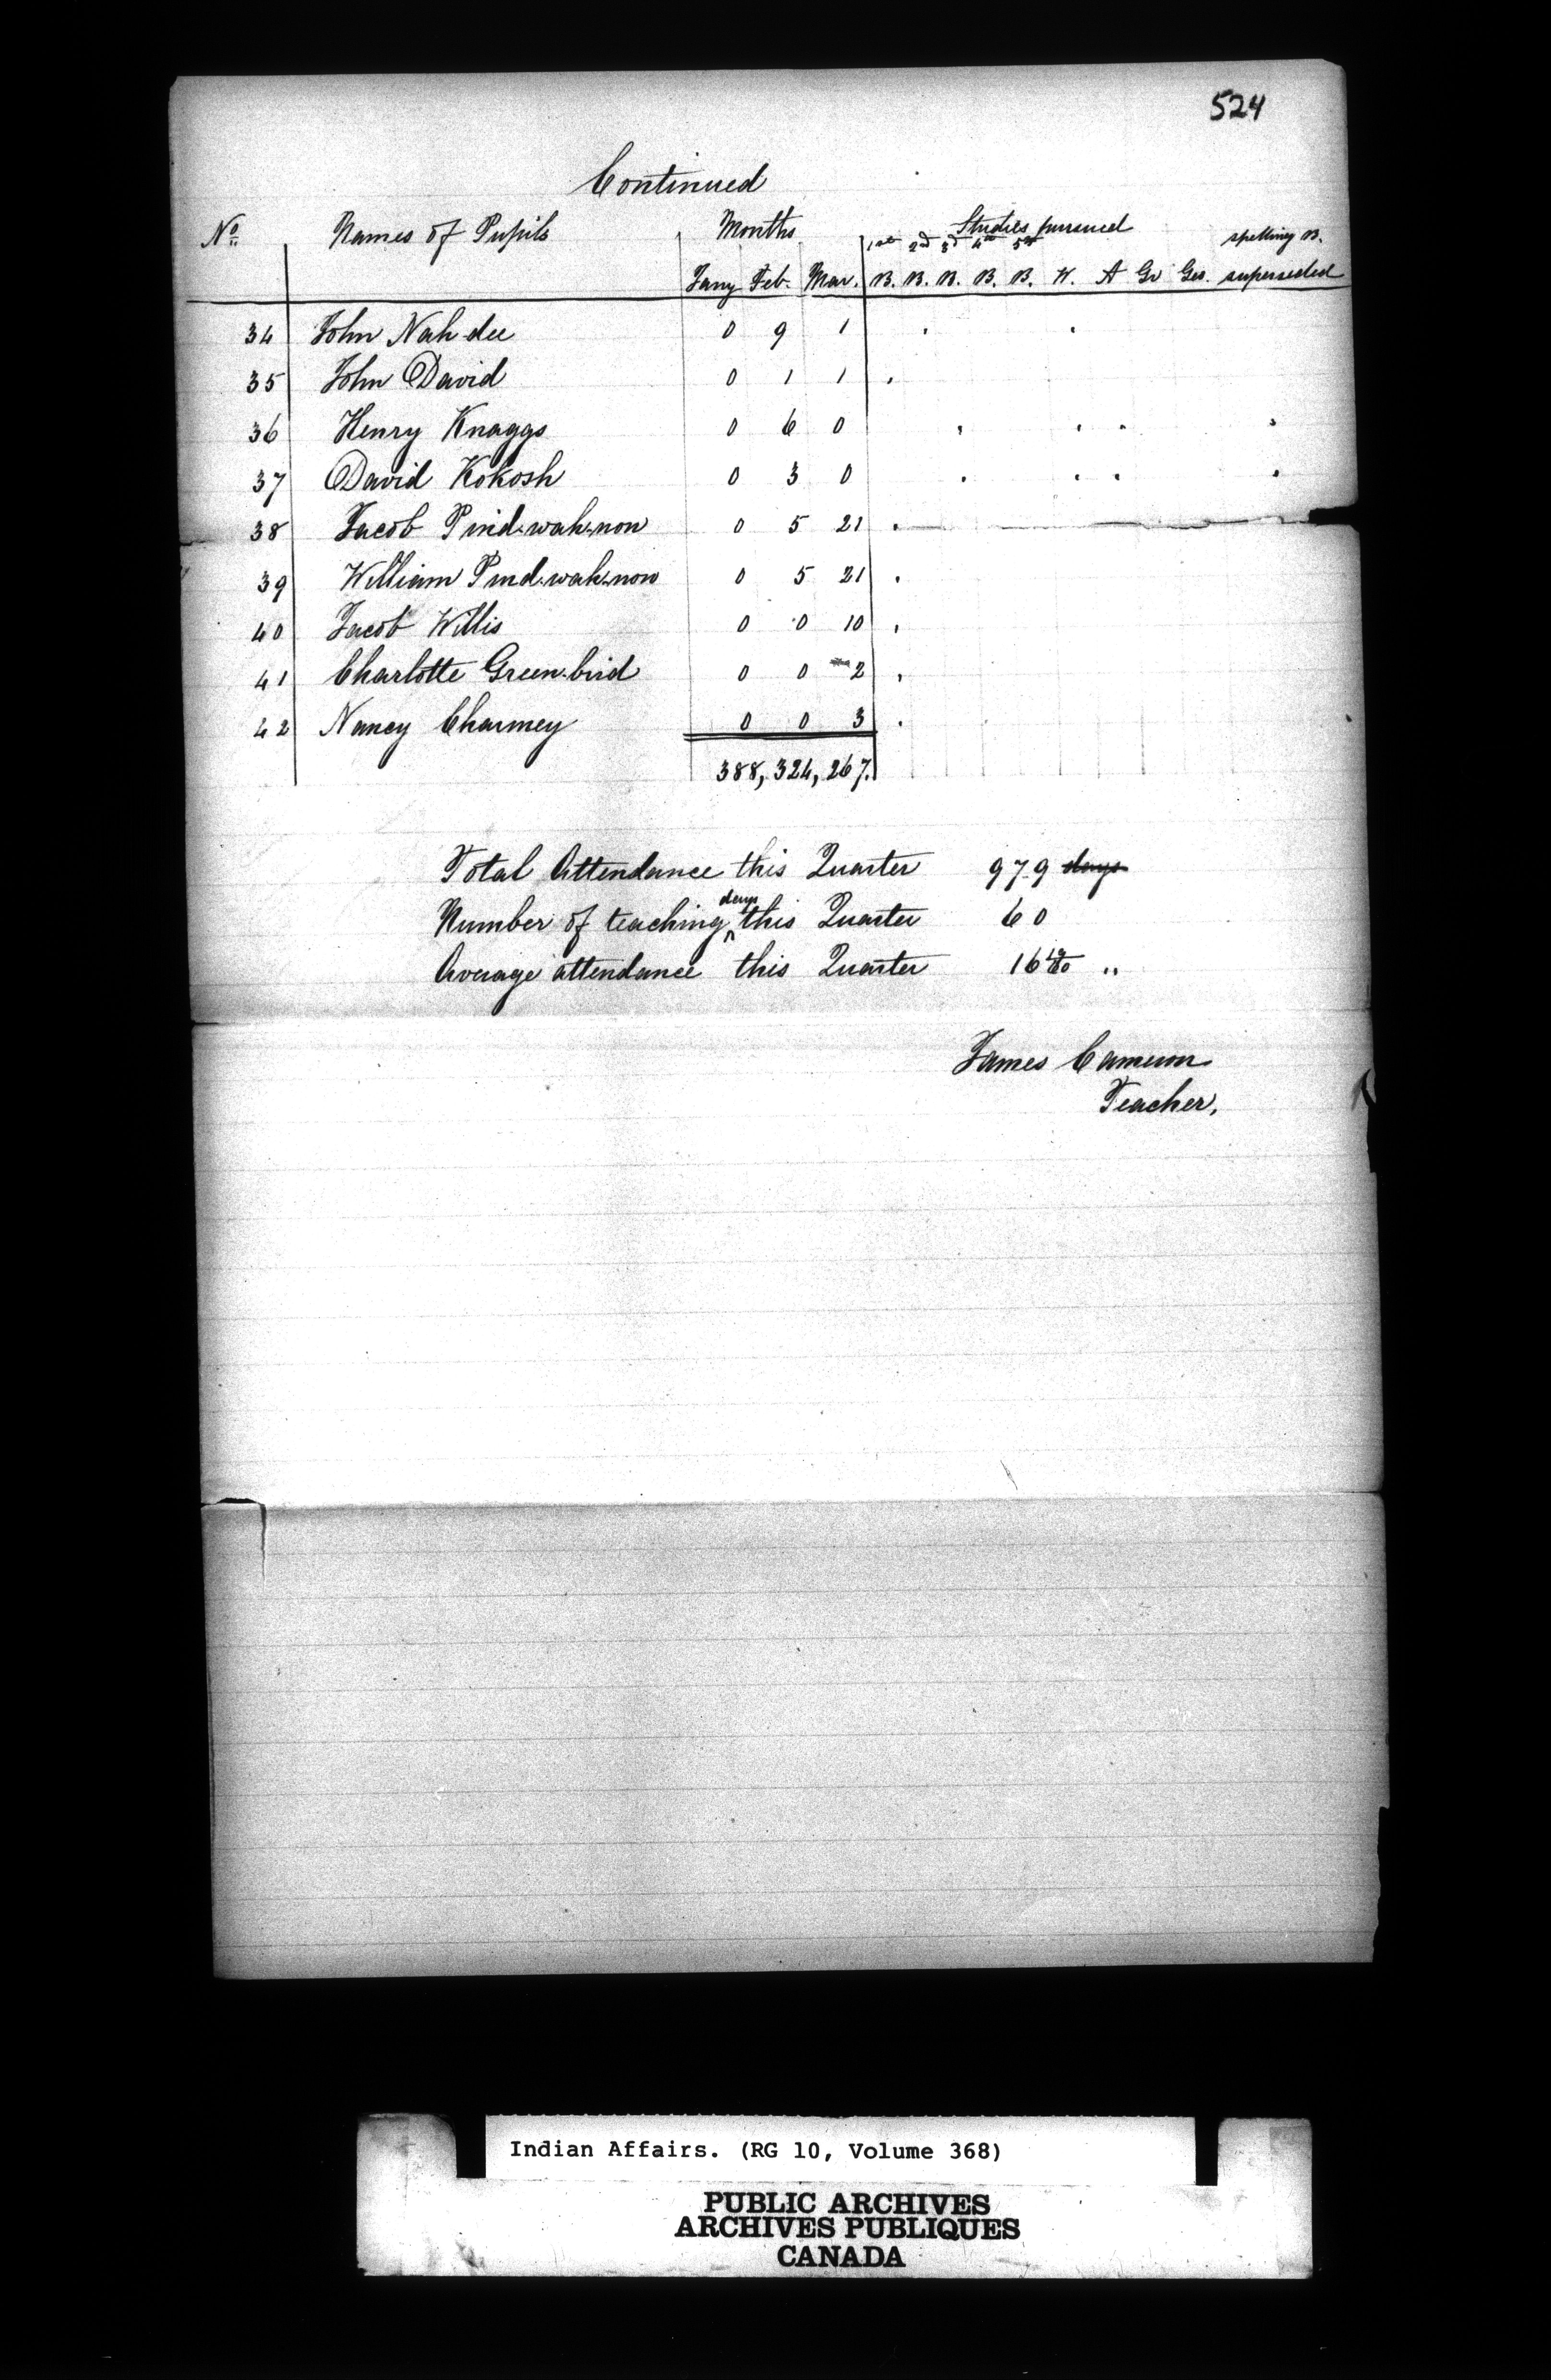 524
Continued
No. Names of Pupils Months Studies pursued spelling B.
1st 2nd 3d 4th 5th
Jany Feb. Mar. B. B. B. B. B. W. A Gr Geo. superseded
34 John Nah-dee 0 9 1 . .
35 John David 0 1 1 .
36 Henry Knaggs 0 6 0 . . . .
37 David Kokosh 0 3 0 . . . .
38 Jacob Pind-wah-non 0 5 21 .
39 William Pind-wah-non 0 5 21 .
40 Jacob Willis 0 0 10 .
41 Charlotte Green-bird 0 0 2 .
42 Nancy Charmey 0 0 3 .
388, 324, 267.
Total Attendance this Quarter 979 days
Number of teaching days this Quarter 60
Average attendance this Quarter 16 19/60 "
James Cameron
Teacher.
Indian Affairs. (RG 10, Volume 368)
PUBLIC ARCHIVES
ARCHIVES PUBLIQUES
CANADA